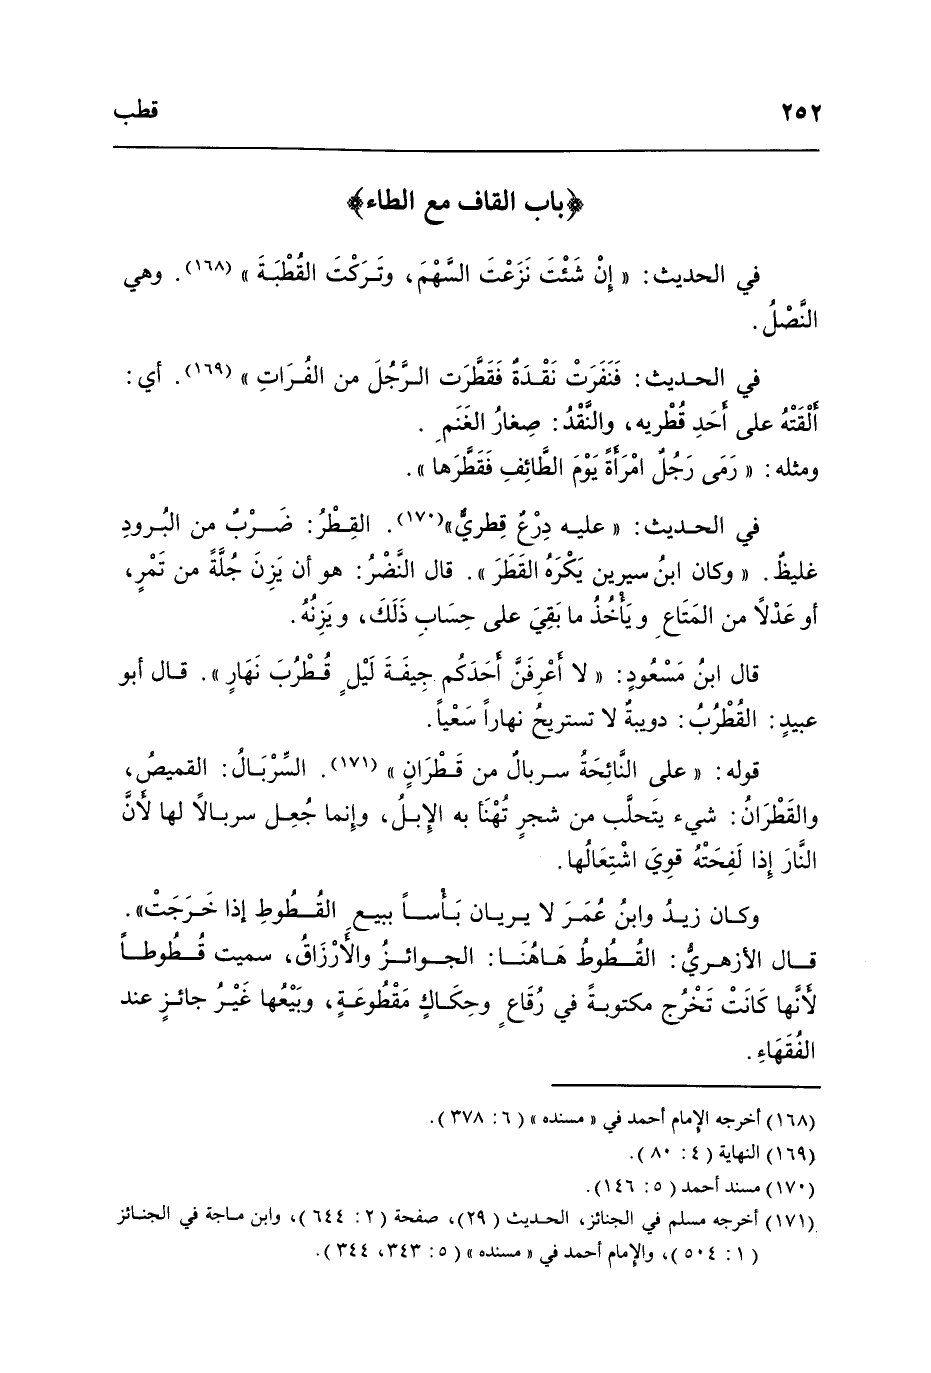 ٢٥٢ قطب
﴿باب القاف مع الطاء﴾
في الحديث: « إِنْ شَئْتَ نَزَعْتَ السَّهْمَ، وتَرَكْتَ القُطْبَةَ » (١٦٨). وهي
النَّصْلُ.
في الحديث: فَنَفَرَتْ نَقْدَةٌ فَقَطَّرَت الرَّجُلَ من الفُرَاتِ » (١٦٩). أي:
أَلْقَتْهُ على أَحَدِ قُطْريه، والنَّقْدُ: صِغارُ الغَنَمِ .
ومثله: « رَمَى رَجُلٌ امْرَأَةً يَوْمَ الطَّائِفِ فَقَطَّرَها ».
في الحديث: « عليه دِرْعٌ قِطريٌّ»(١٧٠). القِطْرُ: ضَرْبٌ من البُرودِ
غليظٌ. « وكان ابنُ سيرين يَكْرَهُ القَطَرَ ». قال النَّضْرُ: هو أن يَزِنَ جُلَّةً من تَمْرٍ،
أو عَدْلاً من المَتَاعِ ويَأْخُذُ ما بَقِيَ على حِسَابِ ذَلَكَ، ويَزِنُهُ.
قال ابنُ مَسْعُودٍ: « لا أَعْرِفَنَّ أَحَدَكُم جِيفَةَ لَيْلٍ قُطْرُبَ نَهَارٍ ». قال أبو
عبيدٍ: القُطْرُبُ: دويبةٌ لا تستريحُ نهاراً سَعْياً.
قوله: « على النَّائِحَةُ سربالٌ من قَطْرَانٍ » (١٧١). السِّرْبَالُ: القميصُ،
والقَطْرَانُ: شيء يتَحلَّب من شجرٍ تُهْنَأ به الإبلُ، وإنما جُعل سربالاً لها لأنَّ
النَّارَ إذا لَفِحَتْهُ قوِيَ اشْتِعَالُها.
وكان زيدُ وابنُ عُمَرَ لا يريان بَأْساً ببيعِ القُطُوطِ إذا خَرَجَتْ».
قال الأزهريُّ: القُطُوطُ هَاهُنَا: الجوائزُ والأَرْزَاقُ، سميت قُطُوطاً
لأَنَّها كَانَتْ تَخْرُج مكتوبةً في رُقَاعٍ وحِكَاكٍ مَقْطُوعَةٍ، وبَيْعُها غَيْرُ جائزٍ عند
الفُقَهَاءِ.
(١٦٨) أخرجه الإمام أحمد في « مسنده » ( ٦: ٣٧٨ ).
(١٦٩) النهاية ( ٤: ٨٠ ).
(١٧٠) مسند أحمد ( ٥: ١٤٦).
(١٧١) أخرجه مسلم في الجنائز، الحديث ( ٢٩)، صفحة (٢: ٦٤٤ )، وابن ماجة في الجنائز
( ١: ٥٠٤ )، والإمام أحمد في « مسنده » ( ٥: ٣٤٣، ٣٤٤ ).